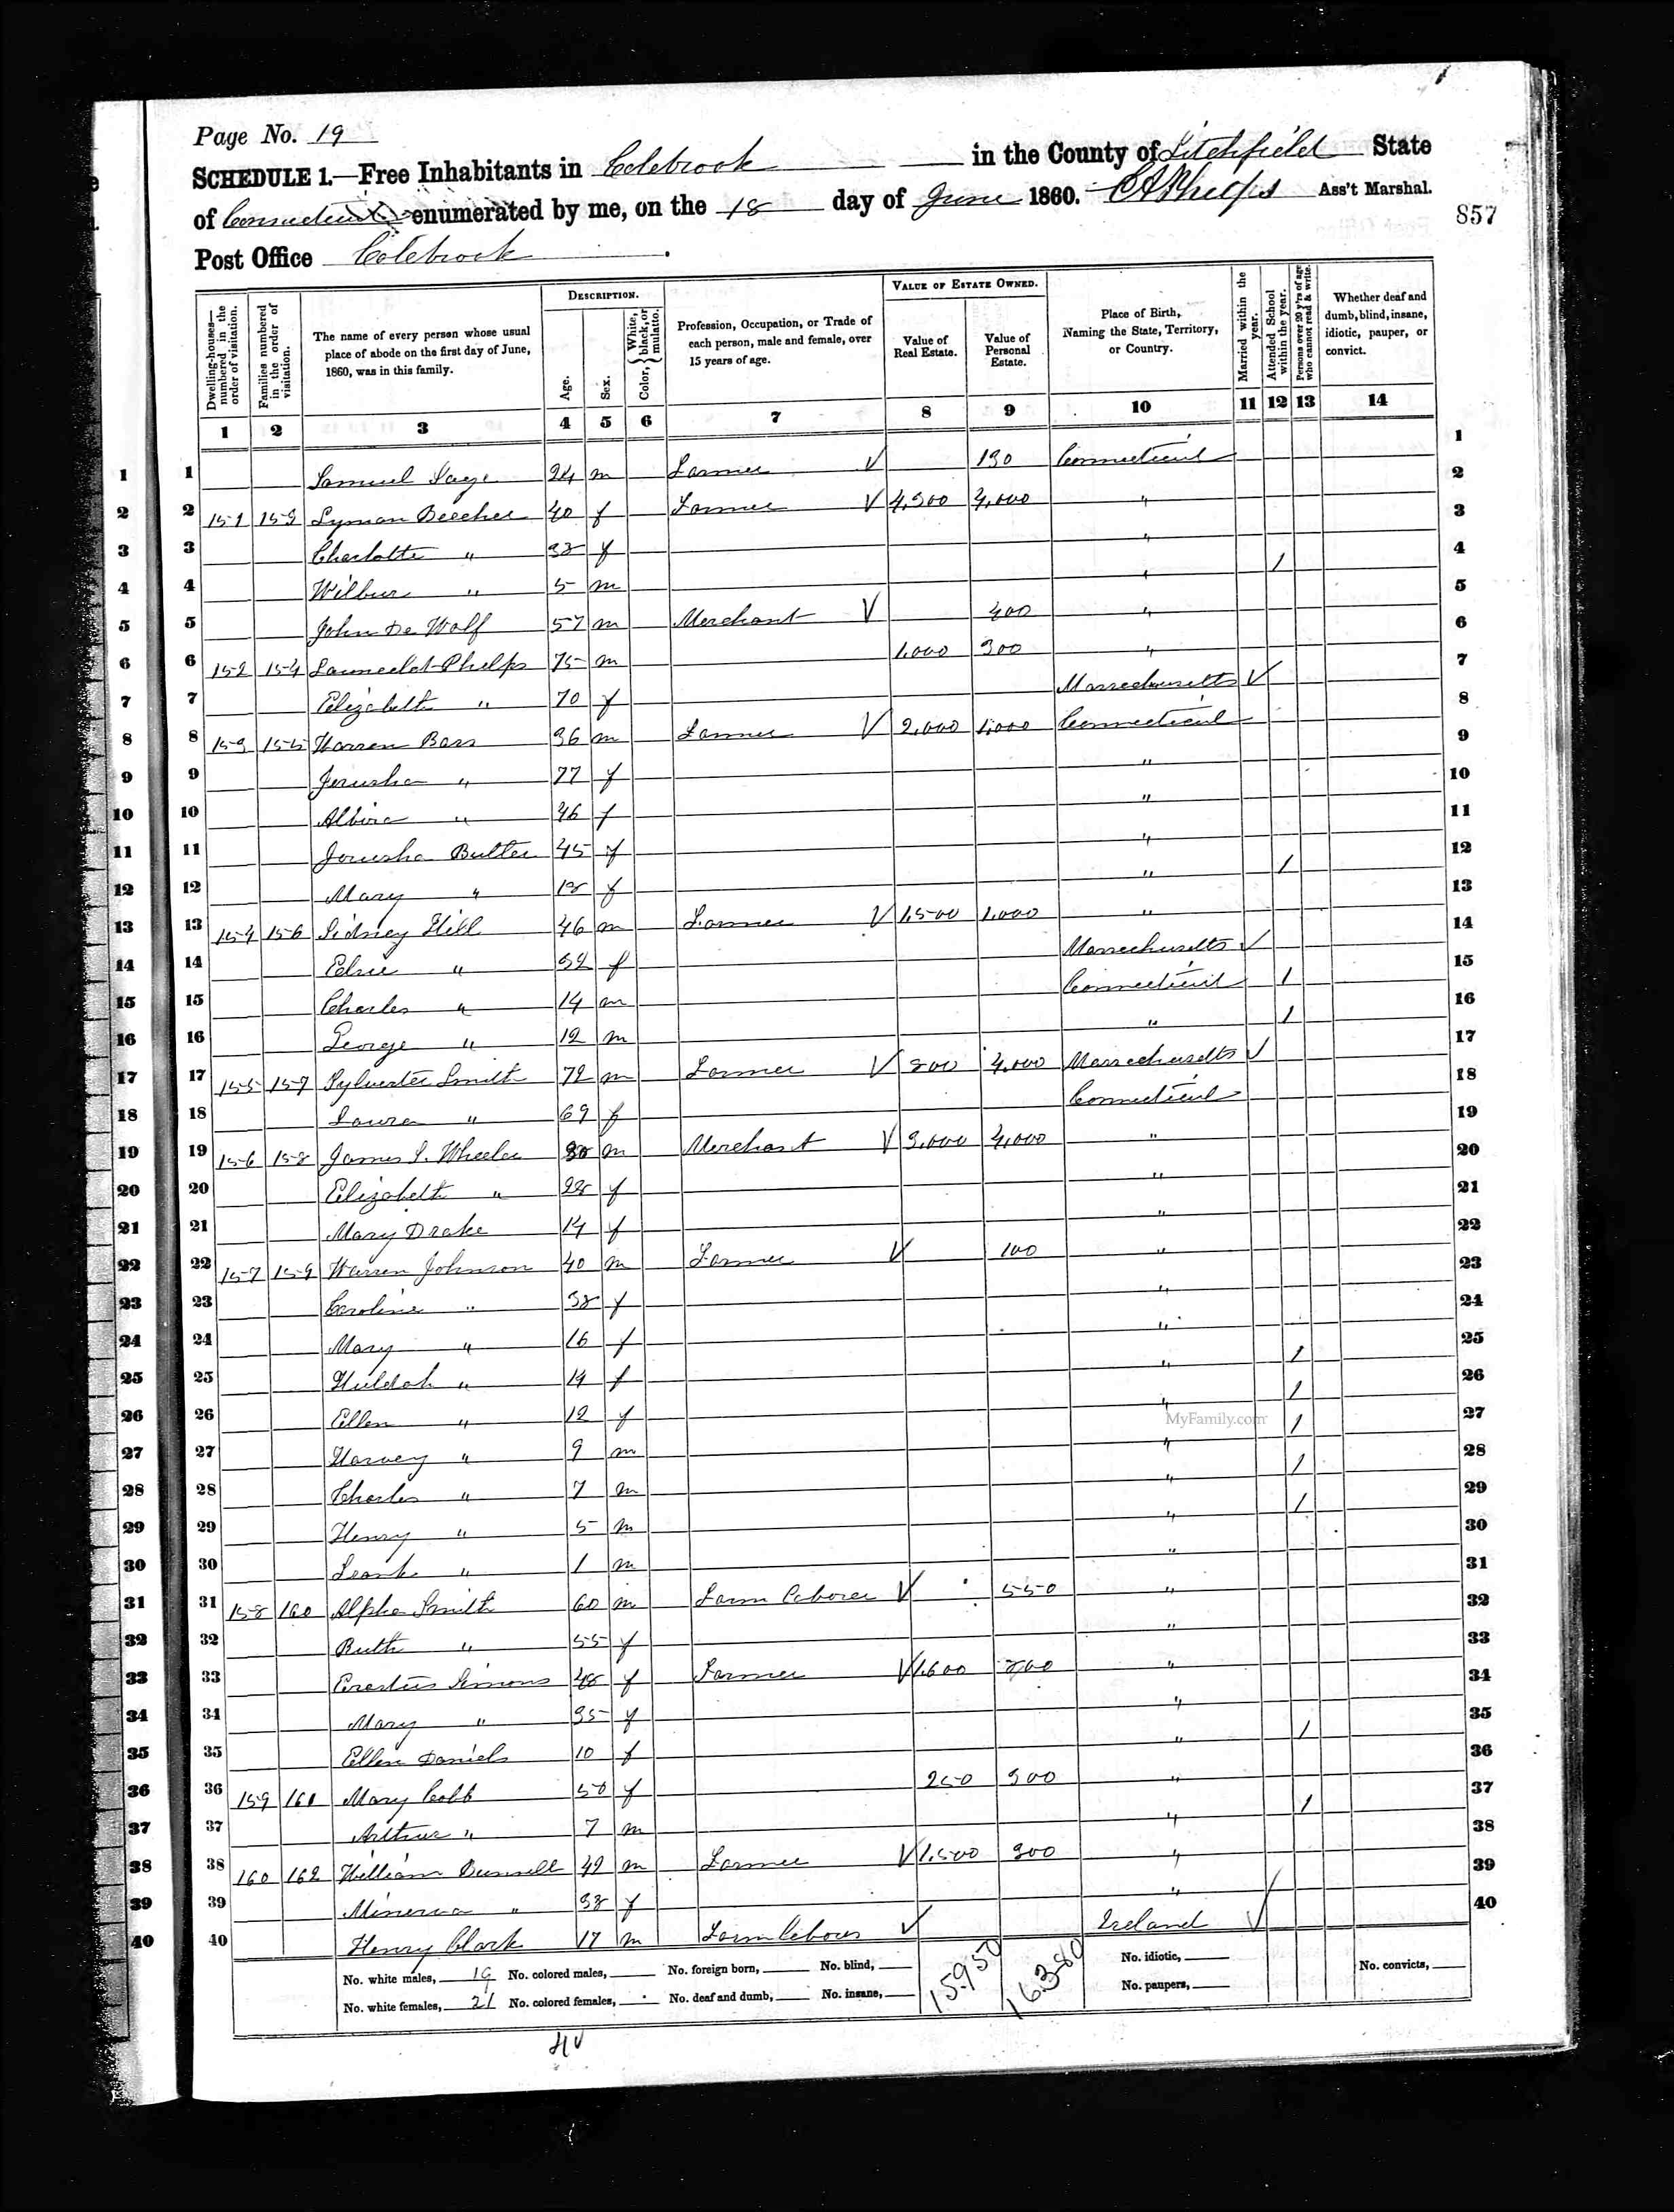 Page No. 19
SCHEDULE 1.—Free Inhabitants in Colebrook in the County of Litchfield State
of Connecticut enumerated by me, on the 18 day of June 1860. C A Phelps Ass't Marshal.
857
Post Office Colebrook
Dwelling-houses—numbered in the order of visitation.
Families numbered in the order of visitation.
The name of every person whose usual place of abode on the first day of June, 1860, was in this family.
DESCRIPTION.
Age.
Sex.
Color, {White, black, or mulatto.
Profession, Occupation, or Trade of each person, male and female, over 15 years of age.
VALUE OF ESTATE OWNED.
Value of Real Estate.
Value of Personal Estate.
Place of Birth, Naming the State, Territory, or Country.
Married within the year.
Attended School within the year.
Persons over 20 y'rs of age who cannot read & write.
Whether deaf and dumb, blind, insane, idiotic, pauper, or convict.
1 2 3 4 5 6 7 8 9 10 11 12 13 14
1 1 Samuel Sage 24 m Farmer V 130 Connecticut 1
2 2 151 153 Lyman Beecher 40 f Farmer V 4,500 4,000 " 2
3 3 Charlotte " 38 f " 3
4 4 Wilbur " 5 m " 1 4
5 5 John De Wolf 57 m Merchant V 400 " 5
6 6 152 154 Launcelot Phelps 75 m 1,000 300 " 6
7 7 Elizabeth " 70 f Massachusetts V 7
8 8 153 155 Warren Bass 36 m Farmer V 2,000 1,000 Connecticut 8
9 9 Jerusha " 77 f " 9
10 10 Albira " 46 f " 10
11 11 Jerusha Butler 45 f " 11
12 12 Mary " 18 f " 1 12
13 13 154 156 Sidney Hill 46 m Farmer V 1,500 1,000 " 13
14 14 " 52 f Massachusetts V 14
15 15 Charles " 14 m Connecticut 1 15
16 16 George " 12 m " 1 16
17 17 155 157 Sylvester Smith 72 m Farmer V 800 4,000 Massachusetts V 17
18 18 Laura " 69 f Connecticut 18
19 19 156 158 James S. Wheeler 30 m Merchant V 3,000 4,000 " 19
20 20 Elizabeth " 28 f " 20
21 21 Mary Drake 14 f " 21
22 22 157 159 Warren Johnson 40 m Farmer V 100 " 22
23 23 Caroline " 38 f " 23
24 24 Mary " 16 f " 24
25 25 Huldah " 14 f " 1 25
26 26 Ellen " 12 f " 1 26
MyFamily.com
27 27 Harvey " 9 m " 1 27
28 28 Charles " 7 m " 1 28
29 29 Henry " 5 m " 1 29
30 30 Frank " 1 m " 30
31 31 158 160 Alpha Smith 60 m Farm Laborer V 550 " 31
32 32 Ruth " 55 f " 32
33 33 Erastus Simons 48 f Farmer V 1,600 200 " 33
34 34 Mary " 35 f " 34
35 35 Ellen Daniels 10 f " 1 35
36 36 159 161 Mary Cobb 50 f 250 300 " 36
37 37 Arthur " 7 m " 1 37
38 38 160 162 William Bunnell 42 m Farmer V 1,500 300 " 38
39 39 Minerva " 38 f " 39
40 40 Henry Clark 17 m Farm labour V Ireland V 40
No. white males, 19 No. colored males, No. foreign born, No. blind, 15950 16380 No. idiotic, No. convicts,
No. white females, 21 No. colored females, No. deaf and dumb, No. insane, No. paupers,
40